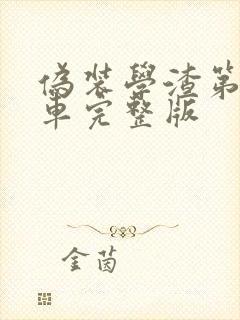 偽裝學渣第
車完整版
金茵